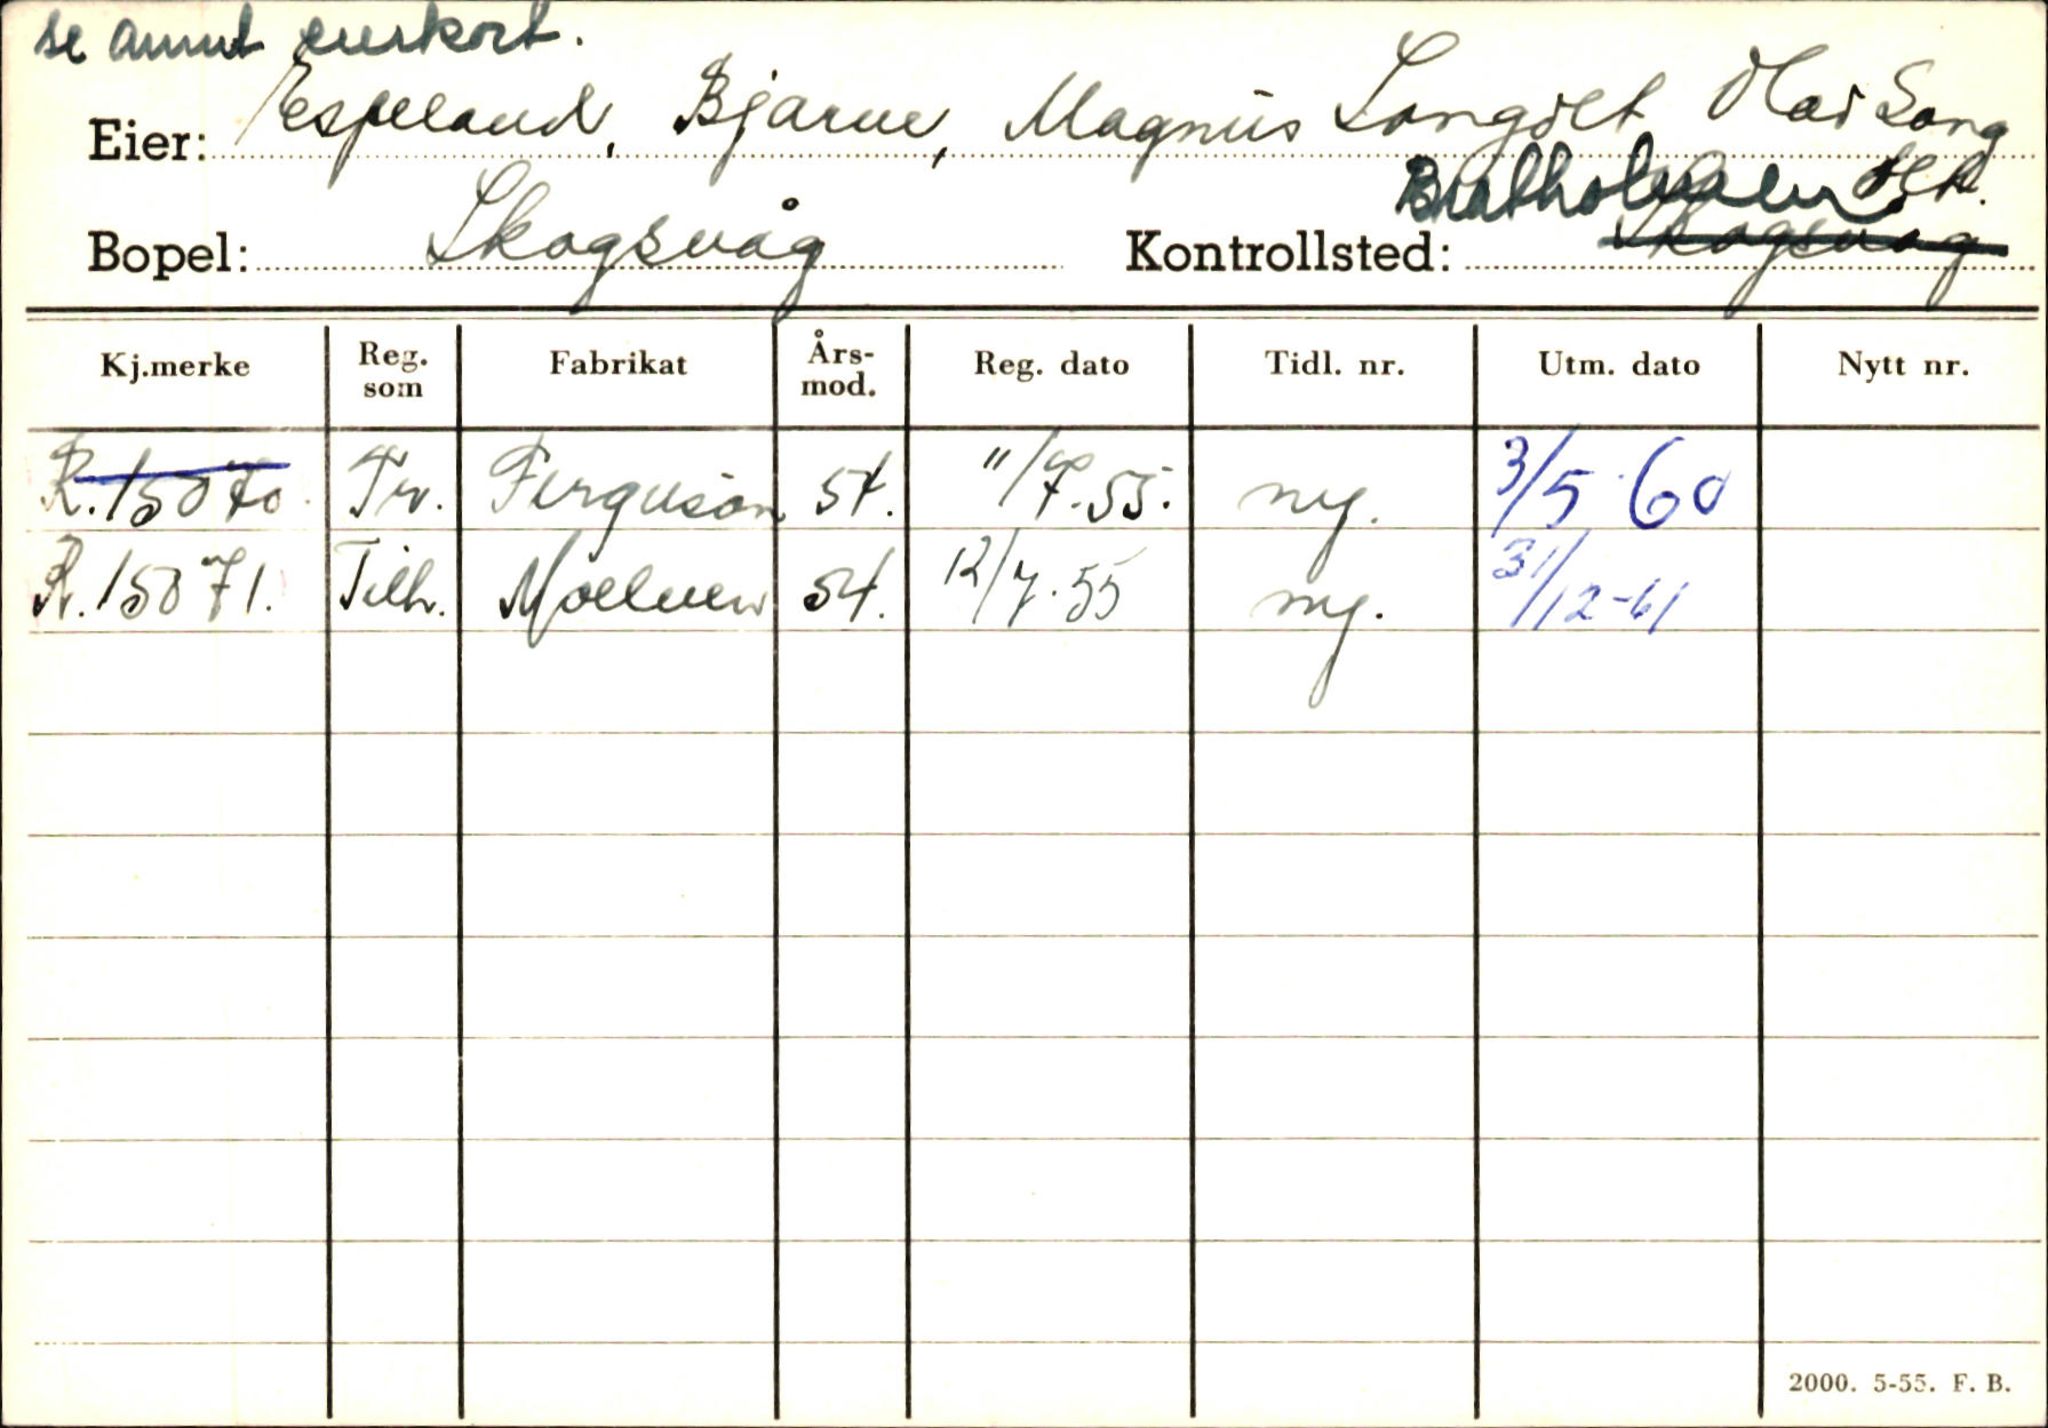 se annet eierkort.
Eier: Espeland, Bjarne, Magnus Langøst Olai Lang
Brattholmen
Bopel: Skogsvåg Kontrollsted: Skogsvåg
Kj.merke Reg. som Fabrikat Års-mod. Reg. dato Tidl. nr. Utm. dato Nytt nr.
R.15070 Tr. Ferguson 54. 11/7.55. ny. 3/5-60
R.15071. Tilh. Moelven 54. 12/7.55 ny. 31/12-61
2000. 5-55. F. B.